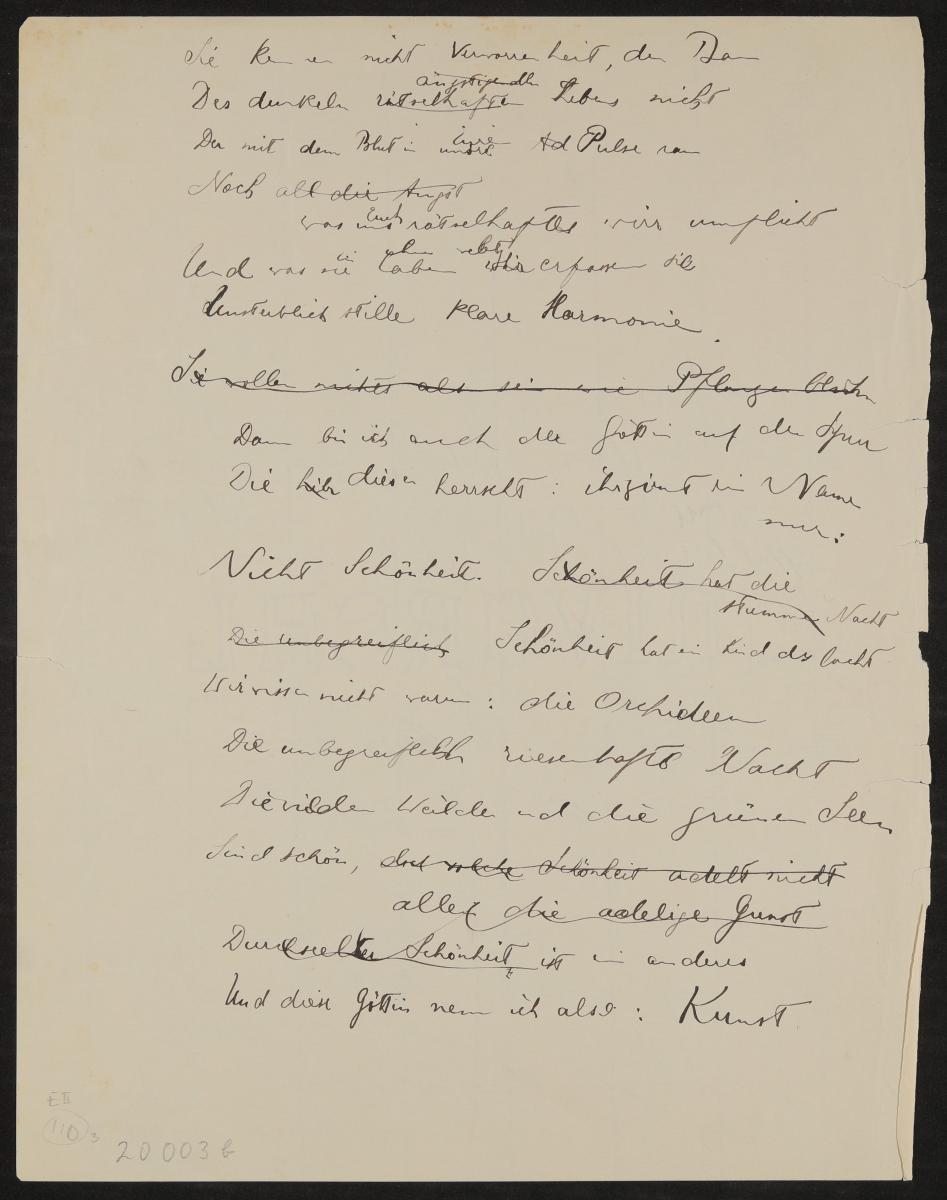 Sie kennen nicht Verworrenheit, den Bann
ängstigenden
Des dunkeln rätselhaften Lebens nicht
Eure
Der mit dem Blut in unsre Pulse rann
Noch all die Angst
Euch
was uns rätselhaftes wirr umflicht
Und was sie
Unsterblich stille klare Harmonie
Sie wollen nichts als sein wie Pflanzen blühn
Dann bin ich auch der Göttin auf der Spur
Die hier diesen herrscht: ihr ziemt ein Name
nur:
Nicht Schönheit. Schönheit hat die
stumme Nacht
Die unbegreiflich Schönheit hat ein Kind das lacht
Wir wissen nicht warum: die Orchideen
Die unbegreiflich riesenhafte Nacht
Die wilden Wälder und die grünen Seen
Sind schön, doch solche Schönheit adelt nicht
alle die adelige Gunst
Durchseelter Schönheit ist ein anderes
Und diese Göttin nenn ich also: Kunst
E II
110 3
20 003 b